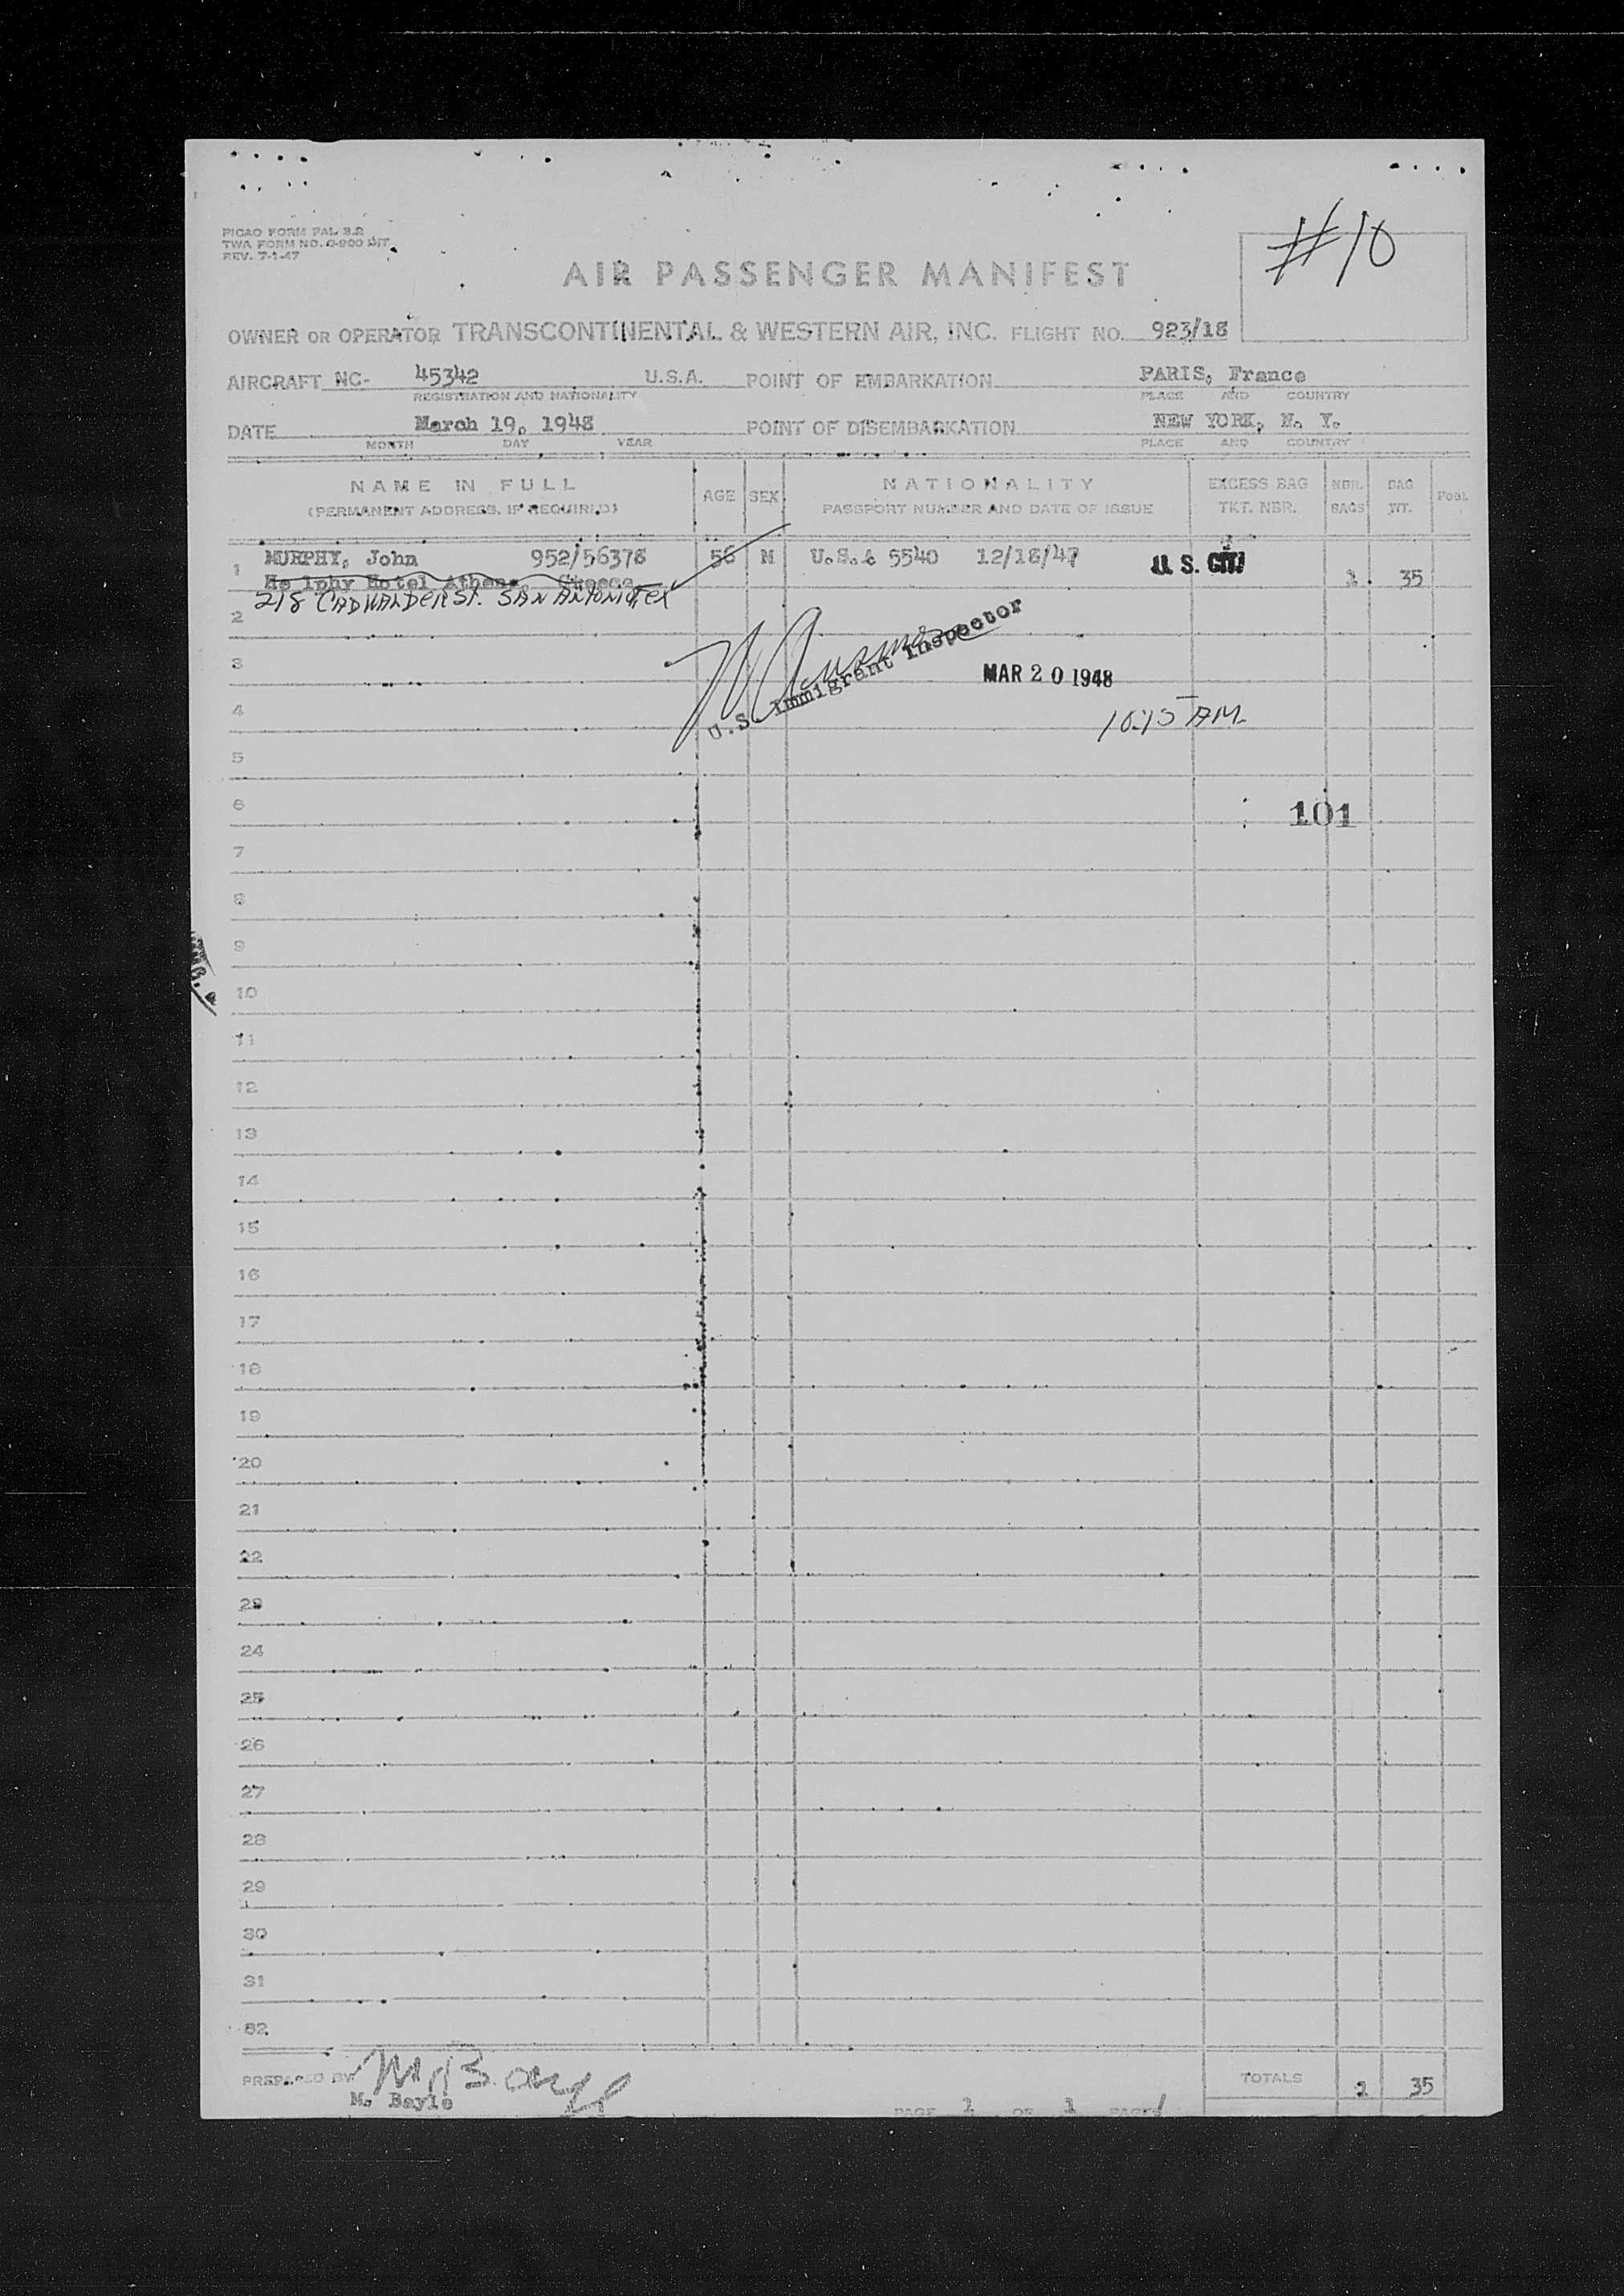 #10
PICAO FORM PAL 3.2
TWA FORM NO. O-900 LIT.
REV. 7-1-47
AIR PASSENGER MANIFEST
OWNER OR OPERATOR TRANSCONTINENTAL & WESTERN AIR, INC. FLIGHT NO. 923/18
AIRCRAFT NC- 45342 U.S.A. POINT OF EMBARKATION PARIS, France
REGISTRATION AND NATIONALITY PLACE AND COUNTRY
DATE March 19, 1948 POINT OF DISEMBARKATION NEW YORK, N. Y.
MONTH DAY YEAR PLACE AND COUNTRY
NAME IN FULL AGE SEX NATIONALITY EXCESS BAG NBR. BAG POOL
(PERMANENT ADDRESS, IF REQUIRED) PASSPORT NUMBER AND DATE OF ISSUE TKT. NBR. BAGS WT.
1 MURPHY, John 952/56378 56 M U.S.A 5540 12/18/47 U.S. CIT 35
Hotel Athens Greece
218 CADWALDER ST. SAN ANTONIO TEX
2
U.S. Immigrant Inspector
3 MAR 20 1948
4 10:15 AM
5
6 101
7
8
9
10
11
12
13
14
15
16
17
18
19
20
21
22
23
24
25
26
27
28
29
30
31
32
PREPARED BY TOTALS 35
M. Bayle
PAGE 1 OF 1 PAGES